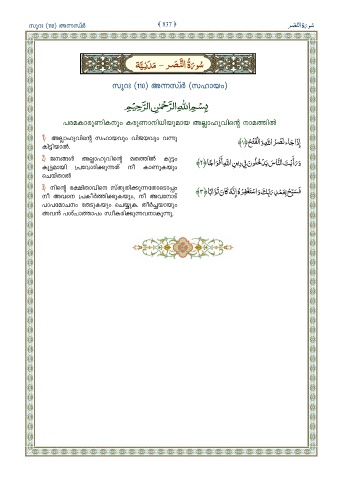 സൂറഃ (110) അന്നസ്ർ ﴾ 837 ﴿ سُورَةُ النَّصْر
سُورَةُ النَّصْر - مَدَنِيَّة
സൂറഃ (110) അന്നസ്ർ (സഹായം)
بِسْمِ اللَّهِ الرَّحْمَٰنِ الرَّحِيمِ
പരമകാരുണികനും കരുണാനിധിയുമായ അല്ലാഹുവിന്റെ നാമത്തിൽ
1) അല്ലാഹുവിന്റെ സഹായവും വിജയവും വന്നു
കിട്ടിയാൽ.
إِذَا جَاءَ نَصْرُ اللَّهِ وَالْفَتْحُ ﴿١﴾
2) ജനങ്ങൾ അല്ലാഹുവിന്റെ മതത്തിൽ കൂട്ടം
കൂട്ടമായി പ്രവേശിക്കുന്നത് നീ കാണുകയും
ചെയ്താൽ
وَرَأَيْتَ النَّاسَ يَدْخُلُونَ فِي دِينِ اللَّهِ أَفْوَاجًا ﴿٢﴾
3) നിന്റെ രക്ഷിതാവിനെ സ്തുതിക്കുന്നതോടൊപ്പം
നീ അവനെ പ്രകീർത്തിക്കുകയും, നീ അവനോട്
പാപമോചനം തേടുകയും ചെയ്യുക. തീർച്ചയായും
അവൻ പശ്ചാത്താപം സ്വീകരിക്കുന്നവനാകുന്നു.
فَسَبِّحْ بِحَمْدِ رَبِّكَ وَاسْتَغْفِرْهُ إِنَّهُ كَانَ تَوَّابًا ﴿٣﴾